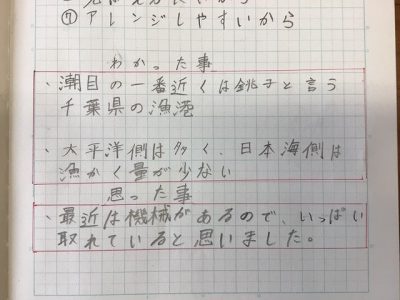 ⑦アレンジしやすいから
わかった事
・潮目の一番近くは銚子と言う
千葉県の漁港
・大平洋側は多く、日本海側は
漁かく量が少ない
思った事
・最近は機械があるので、いっぱい
取れていると思いました。